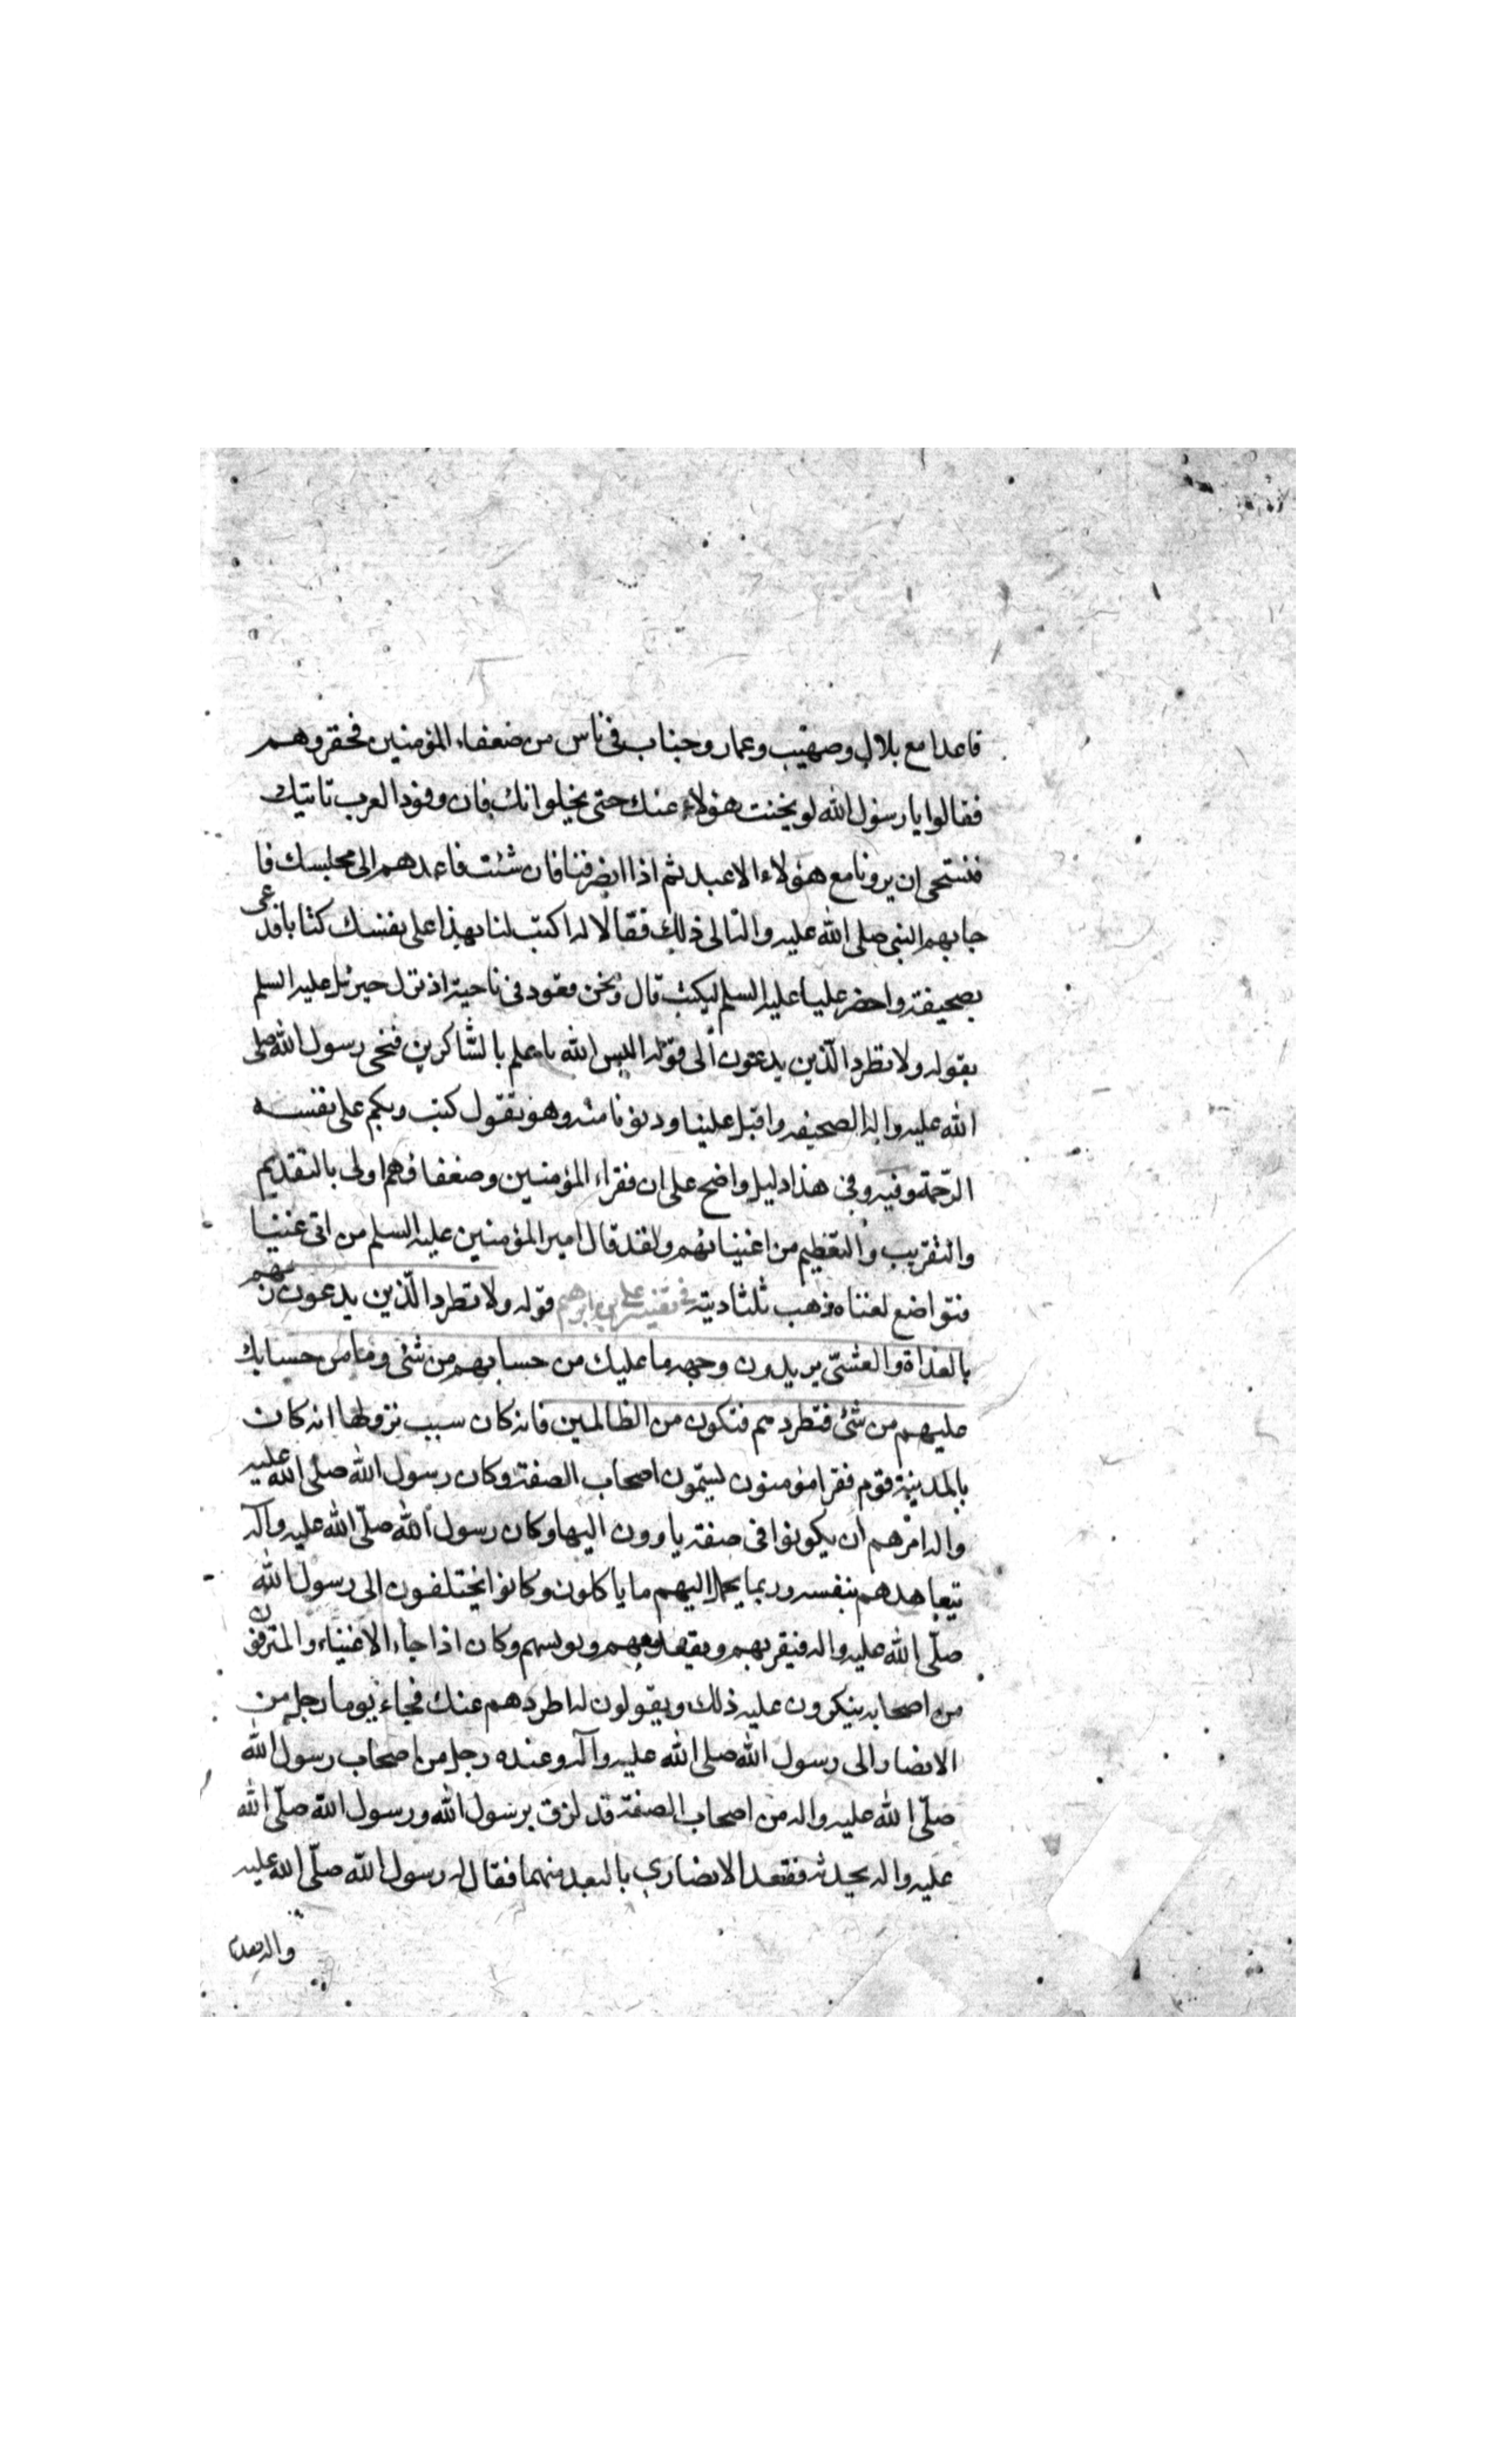 قاعدا مع بلال وصهيب وعمار وخباب في ناس من ضعفاء المؤمنين فحقروهم
فقالوا يا رسول الله لو نحيت هؤلاء عنك حتى نخلوا نك فان وفود العرب تاتيك
فنستحي ان يرونا مع هؤلاء الاعبد ثم اذا انصرفنا فان شئت فاعدهم الى مجلسك فا
جابهم النبي صلى الله عليه واله الى ذلك فقالا له اكتب لنا بهذا على نفسك كتابا فدعى
بصحيفة واحضر عليا عليه السلم ليكتب قال ونحن قعود في ناحية اذ نزل جبرئيل عليه السلم
بقوله ولا تطرد الذين يدعون الى قوله اليس الله باعلم بالشاكرين فنحى رسول الله صلى
الله عليه واله الصحيفه واقبل علينا ودنونا منه وهو يقول كتب ربكم على نفسه
الرحمة وفيه وفي هذا دليل واضح على ان فقراء المؤمنين وضعفاؤهم اولى بالتقديم
والتقريب والتعظيم من اغنيائهم ولقد قال امير المؤمنين عليه السلم من اتى غنيا
فتواضع لغناه ذهب ثلثا دينه في تفسير علي بن ابرهيم قوله ولا تطرد الذين يدعون ربهم
بالغداة والعشي يريدون وجهه ما عليك من حسابهم من شئ وما من حسابك
عليهم من شئ فتطردهم فتكون من الظالمين فانه كان سبب نزولها انه كان
بالمدينة قوم فقرا مؤمنون يسمون اصحاب الصفة وكان رسول الله صلى الله عليه
واله امرهم ان يكونوا في صفة ياوون اليها وكان رسول الله صلى الله عليه وآله
يتعاهدهم بنفسه وربما يحمل اليهم ما ياكلون وكانوا يختلفون الى رسول الله
صلى الله عليه واله فيقربهم ويقعد معهم ويونسهم وكان اذا جاء الاغنياء والمترفون
من اصحابه ينكرون عليه ذلك ويقولون له اطردهم عنك فجاء يوما رجل من
الانصار الى رسول الله صلى الله عليه وآله وعنده رجل من اصحاب رسول الله
صلى الله عليه واله من اصحاب الصفة قد لزق برسول الله ورسول الله صلى الله
عليه واله يحدثه فقعد الانصاري بالبعد منهما فقال له رسول الله صلى الله عليه
واله